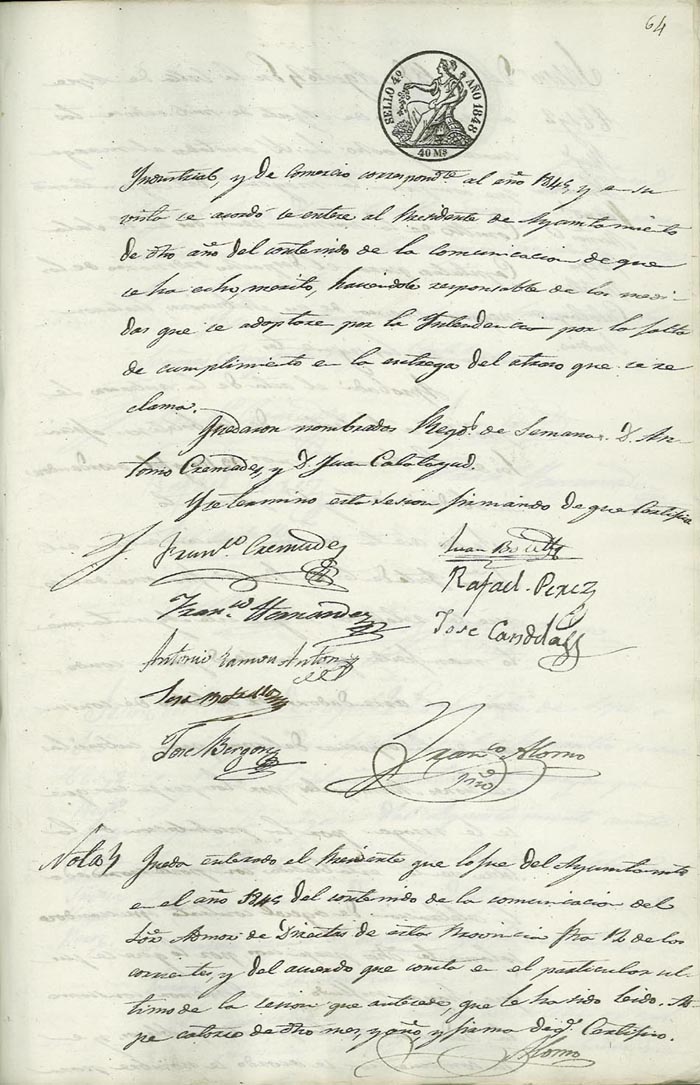 64
SELLO 4º AÑO 1848
40 Ms
Industrial, y de Comercio correspondte al año 1845, y en su
vista se acordó se entere al Presidente de Ayuntamiento
de dho año del contenido de la comunicacion de que
se ha echo, merito, haciendole responsable de las medi
das que se adoptare por la Intendencia por la falta
de cumplimiento en la entrega del atraso que se re
clama.
Quedaron nombrados Regds de Semana D. An
tonio Cremades, y D. Juan Calatayud.
Y se termino esta sesion firmando de que Certifico
Franco Cremades
Juan
Rafael Perez
Franco Hernandez
Jose Candela
Antonio Ramon Anton
Jose
Jose
Franco Alomo
Srio
Nota Queda enterado el Presidente que lo fue del Ayuntamto
en el año 1845 del contenido de la comunicacion del
Sor Admor de Directas de esta Provincia fha 12 de los
corrientes, y del acuerdo que consta en el particular ul
timo de la sesion que antecede, que le ha sido leido.
pe catorce de dho mes, y año, y firma de q. Certifico.
Alomo